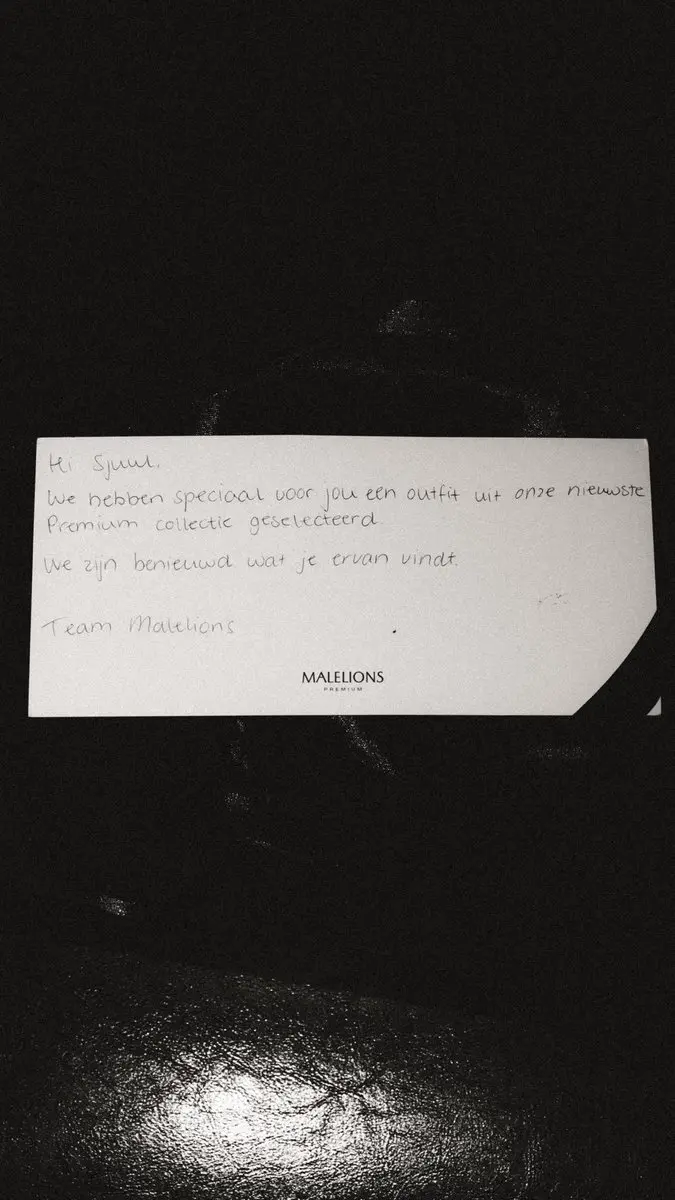 Hi Sjuul,
We hebben speciaal voor jou een outfit uit onze nieuwste
Premium collectie geselecteerd
We zijn benieuwd wat je ervan vindt.
Team Malelions
MALELIONS
PREMIUM